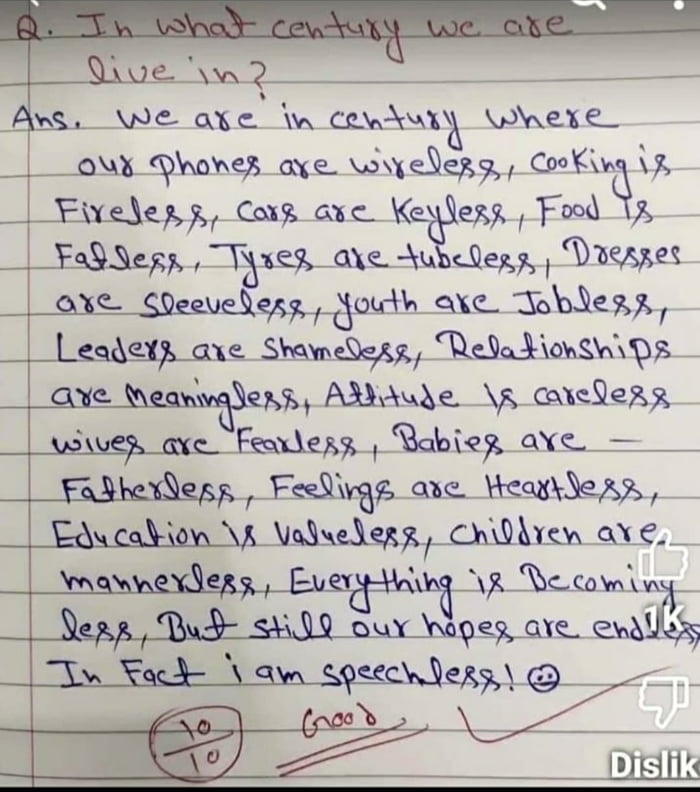 Q. In what century we are
live in?
Ans. We are in century where
our phones are wireless, cooking is
Fireless, Cars are Keyless, Food is
Fatless, Tyres are tubeless, Dresses
are sleeveless, youth are Jobless,
Leaders are Shameless, Relationships
are Meaningless, Attitude is careless
wives are Fearless, Babies are —
Fatherless, Feelings are Heartless,
Education is Valueless, children are
mannerless, Everything is Becoming
less, But still our hopes are endless
In Fact i am speechless! ☺
10/10 Good
1K
Dislik